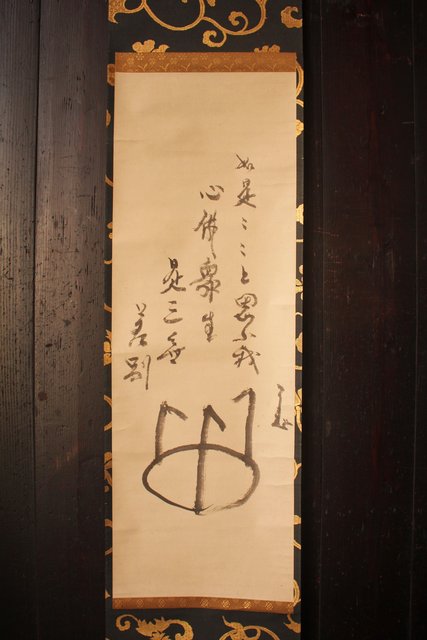 如是ゝゝと思ふ我
心佛衆生
是三無
差別